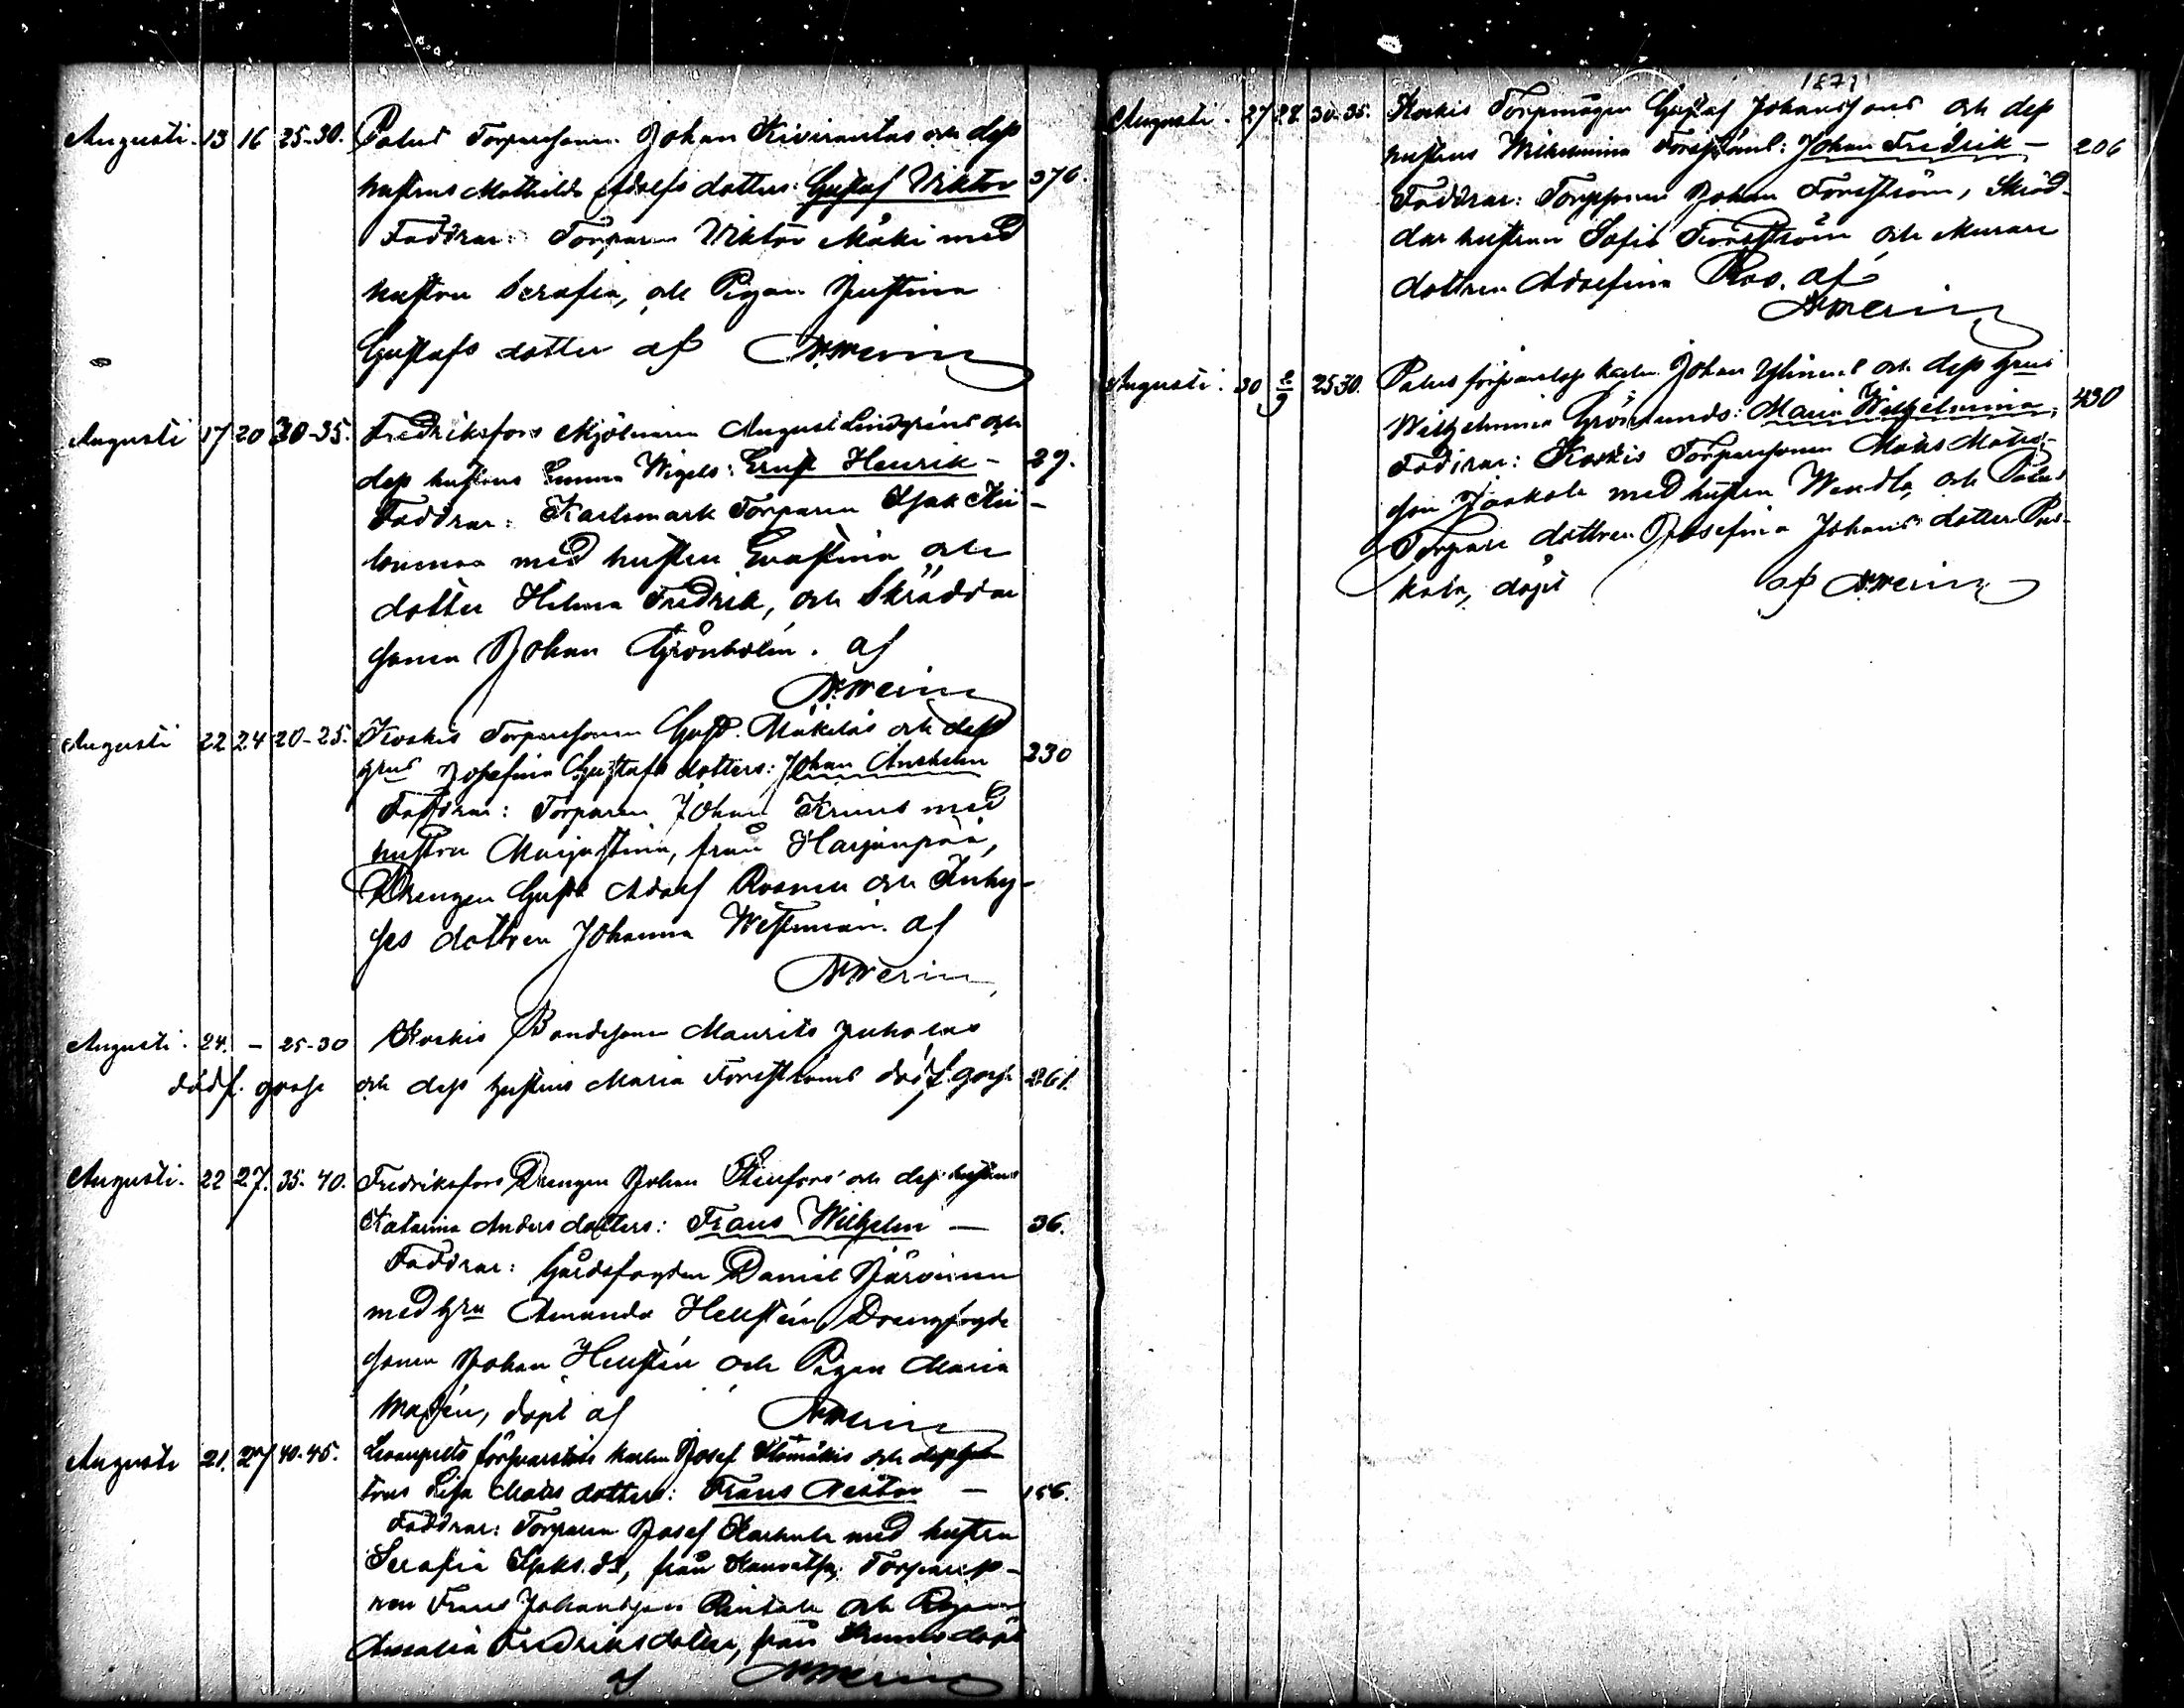 Augusti. 13 16 25-30. Palus Torparesonen Johan Kivirantas och dess
hustrus Mathilda Adolfs dotters: Gustaf Viktor 376.
Faddrar: Torparen Viktor Mäki med
hustru Serafia, och Pigan Justina
Gustafs dotter af
Augusti 17 20 30-35. Fredriksfors Mjölnaren August Lindgréns och
dess hustrus Emma Wigels: Ernst Henrik - 29.
Faddrar: Torparen Isak Kii-
lunmaa med hustru Evastina och
dotter Hilma Fredrik, och Skräddar
sonen Johan Grönholm. af
Augusti 22 24 20-25. Koskis Torparesonen Gust. Mäkiläs och dess
hrus Josefina Gustafs dotters: Johan Anshelm 230
Faddrar: Torparen Johan Kruus med
hustru Marjastina, från Harjunpää,
Drengen Gust. Adolf Rosnell och Inhy-
ses dottren Johanna Westman. af
Augusti. 24. - 25-30 Koskis Bondesonen Maurits Juholas
dödf. gosse och dess hustrus Maria Forsströms dödf. gosse 261.
Augusti. 22 27. 35-40. Fredriksfors Drengen Johan Stenfors och dess hustrus
Katarina Anders dotters: Frans Wilhelm - 36.
Faddrar: Gårdsfogden Daniel Järvinen
med hru Amanda Hellstén, Drengfogde
sonen Johan Hellstén och Pigan Maria
döpt af
Augusti 21. 27 40-45. Levanpelto försvarslös karlen Josef och dess hus-
trus Lisa Mats dotters: Frans Nestor - 156.
Faddrar: Torparen Josef med hustru
Serafia från Torpare
Frans Johansson Rintala och Pigan
Amalia Fredriksdotter, från döpt
af
1871
Augusti. 27 28. 30-35. Koskis Torpmågen Gustaf Johanssons och dess
hustrus Wilhelmina Forsströms: Johan Fredrik - 206
Faddrar: Torpsonen Johan Forsström, Skräd-
dar hustrun Sofia Forsström och Murare
dottren Adolfina Roo. af
Augusti. 30 2/9 25-30. Palus försvarslös karlen Johan och dess hrus
Wilhelmina Grönlunds: Maria Wilhelmina, 430
Faddrar: Koskis Torparesonen Mats Mats-
son Jaakola med hustru Wendla, och Palus
Torpare dottren Josefina Johans dotter
döpt af